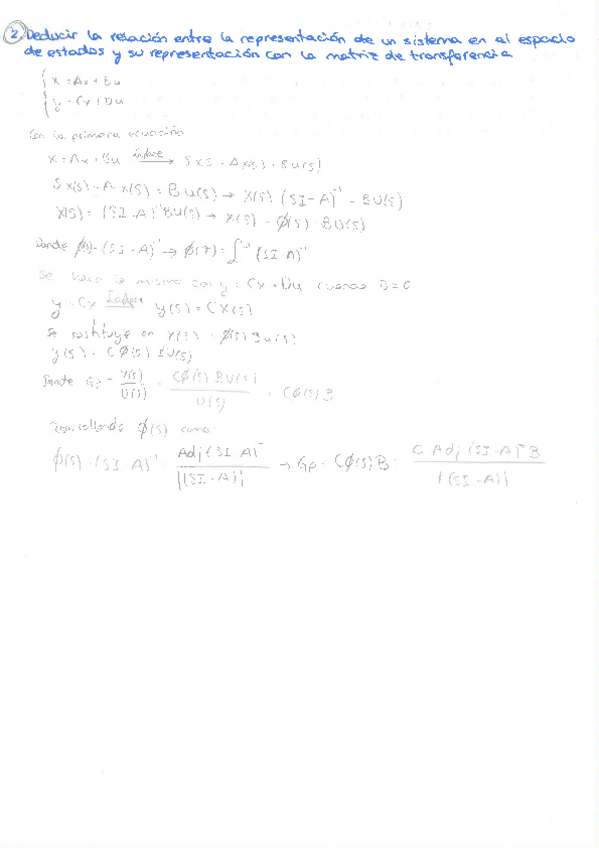 2. Deducir la relación entre la representación de un sistema en el espacio
de estados y su representación con la matriz de transferencia
x = Ax + Bu
y = Cx + Du
Con la primera ecuación
x = Ax + Bu Laplace → S X(S) = A X(S) + B U(S)
S X(S) - A X(S) = B U(S) → X(S) (SI-A)⁻¹ = B U(S)
X(S) = (SI-A)⁻¹ B U(S) → X(S) = ϕ(S) · B U(S)
Donde ϕ(S) = (SI-A)⁻¹ → ϕ(t) = ∫⁻¹ (SI-A)⁻¹
Se hace lo mismo con y = Cx + Du cuando D = 0
y = Cx Laplace Y(S) = C X(S)
Se sustituye en X(S) = ϕ(S) B U(S)
Y(S) = C ϕ(S) B U(S)
Donde Gp = Y(S)/U(S) = Cϕ(S) B U(S) / U(S) = Cϕ(S) B
ϕ(S) como:
ϕ(S) = (SI-A)⁻¹ = Adj (SI-A)⁻ / |(SI-A)| → Gp = Cϕ(S) B = C Adj (SI-A)⁻ B / |(SI-A)|